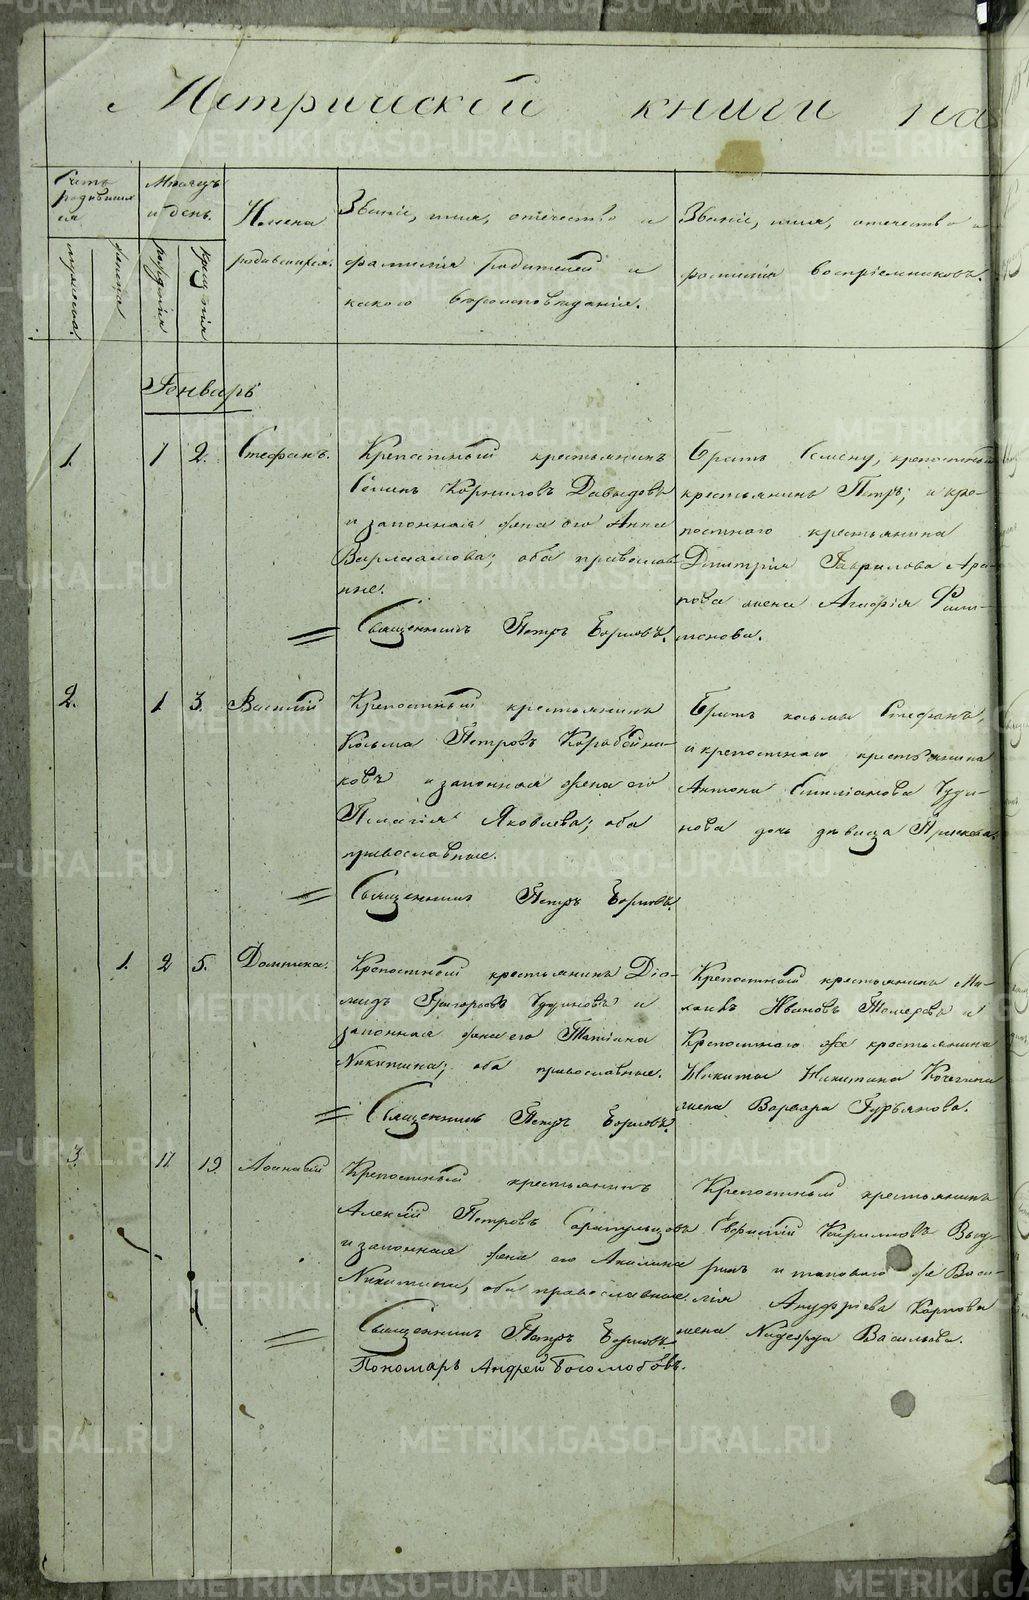 Метрической книги на
Счетъ
родивших
ся
Мѣсяцъ
и день.
мужеска.
женска
рожденія
крещенія
Имена
родившихся.
Званіе, имя, отечество и
фамилія Родителей и
какого вѣроисповѣданія.
Званіе, имя, отечество и
фамилія воспріемниковъ.
Генварь
1. 1 2. Стефанъ.
Крепостный крестьянинъ
Корниловъ Давыдовъ
и законная жена его Анна
Варлаамова; оба православ
ные.
Священникъ Петръ
Братъ Семену, крепостный
крестьянинъ Петръ; и кре-
постного крестьянина
Дмитрія Гаврилова
жена Агафія Фили-
монова.
2. 1. 3. Василій
Крепостный крестьянинъ
Косьма Петровъ Коробейни-
ковъ и законная жена его
Пелагія Яковлева; оба
православные.
Священникъ Петръ
Братъ косьмы Стефанъ,
и крепостнаго крестьянина
Антона Чуди-
нова дочь дѣвица
1. 2 5. Домника.
Крепостный крестьянинъ Діо-
мидъ Григорьевъ Чудиновъ и
законная жена его Татіана
Никитина; оба православные.
Священникъ Петръ
Крепостный крестьянинъ Ми-
хаилъ Ивановъ и
Крепостного же крестьянина
Никиты Никитина
жена Варвара Гурьянова.
3. 17. 19.
Крепостный крестьянинъ
Алексій Петровъ Сарапульцовъ
и законная жена его Акилина
Никитина, оба православные
Священникъ Петръ
Пономарь Андрей Боголюбовъ.
Крепостный крестьянинъ
Кириловъ
и таковаго же Васи-
лія Ануфріева Карпова
жена Надежда Васильева.
METRIKI.GASO-URAL.RU